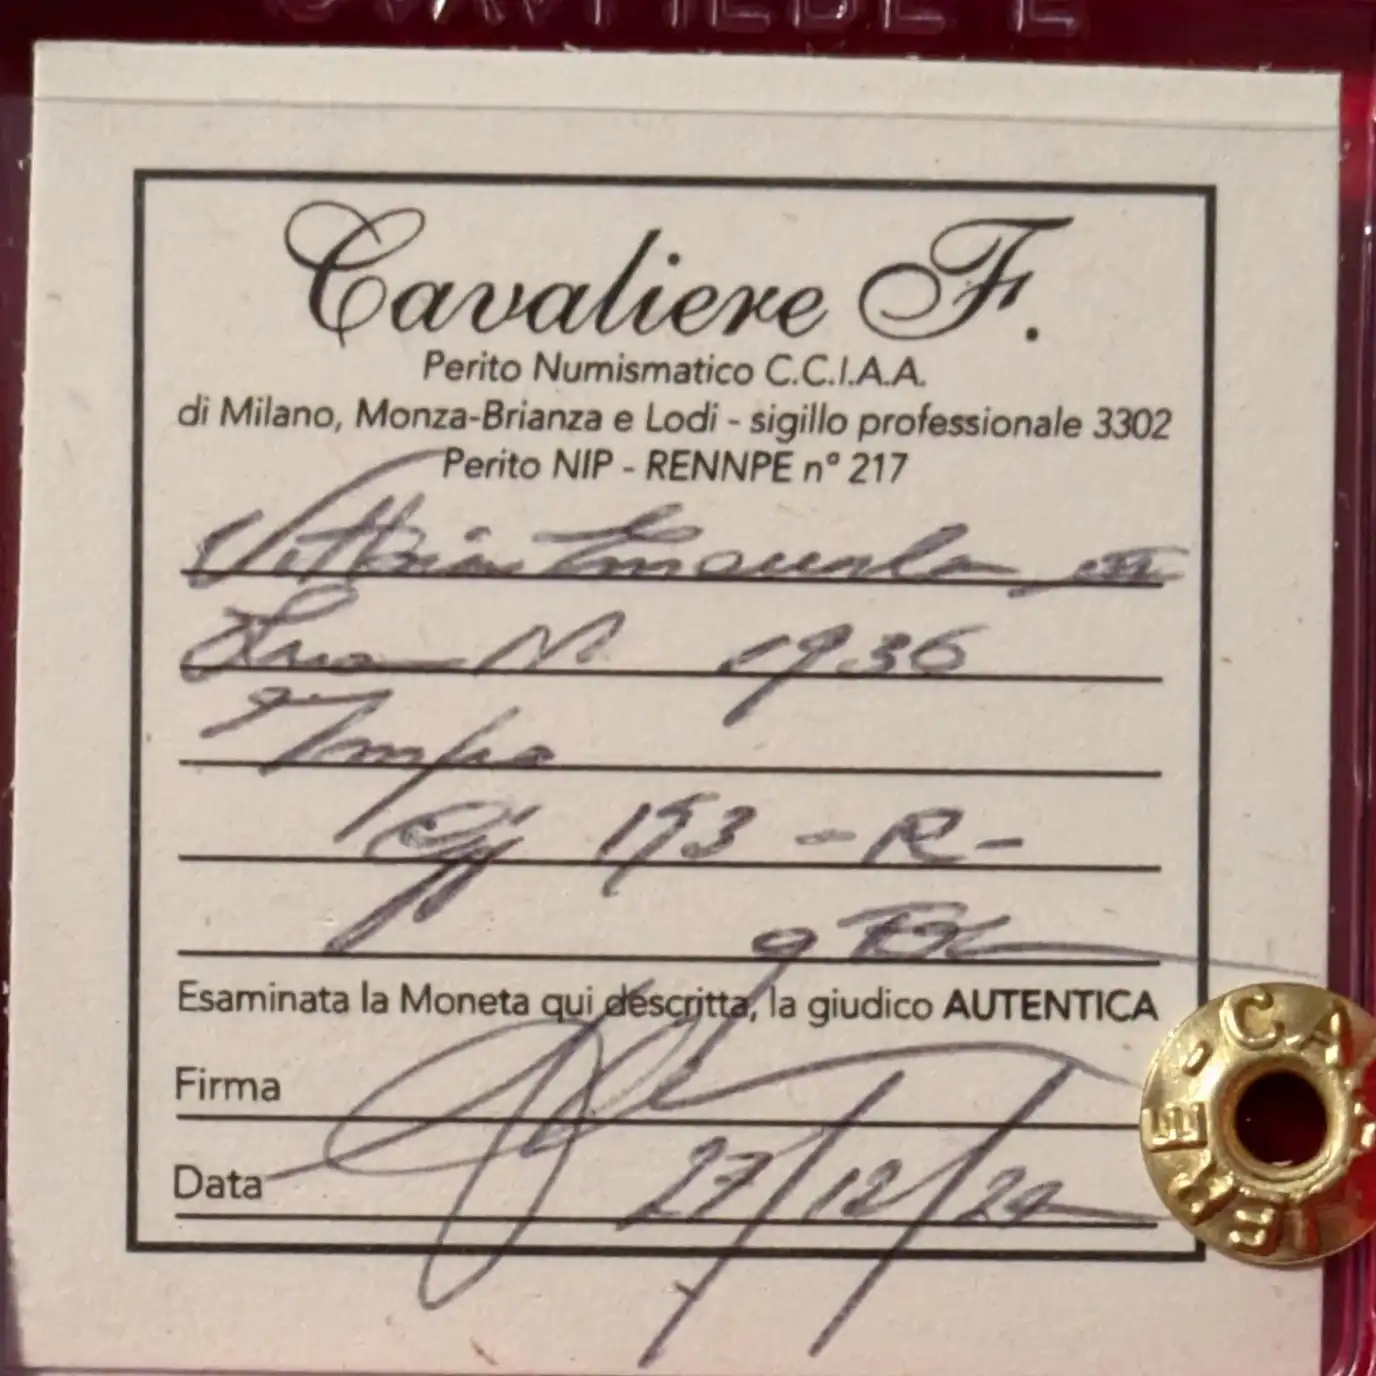 Cavaliere F.
Perito Numismatico C.C.I.A.A.
di Milano, Monza-Brianza e Lodi - sigillo professionale 3302
Perito NIP - RENNPE n° 217
Vittorio Emanuele III
Lira N 1936
Impero
Gig 153 - R -
q FDC
Esaminata la Moneta qui descritta, la giudico AUTENTICA
Firma
Data 27/12/24